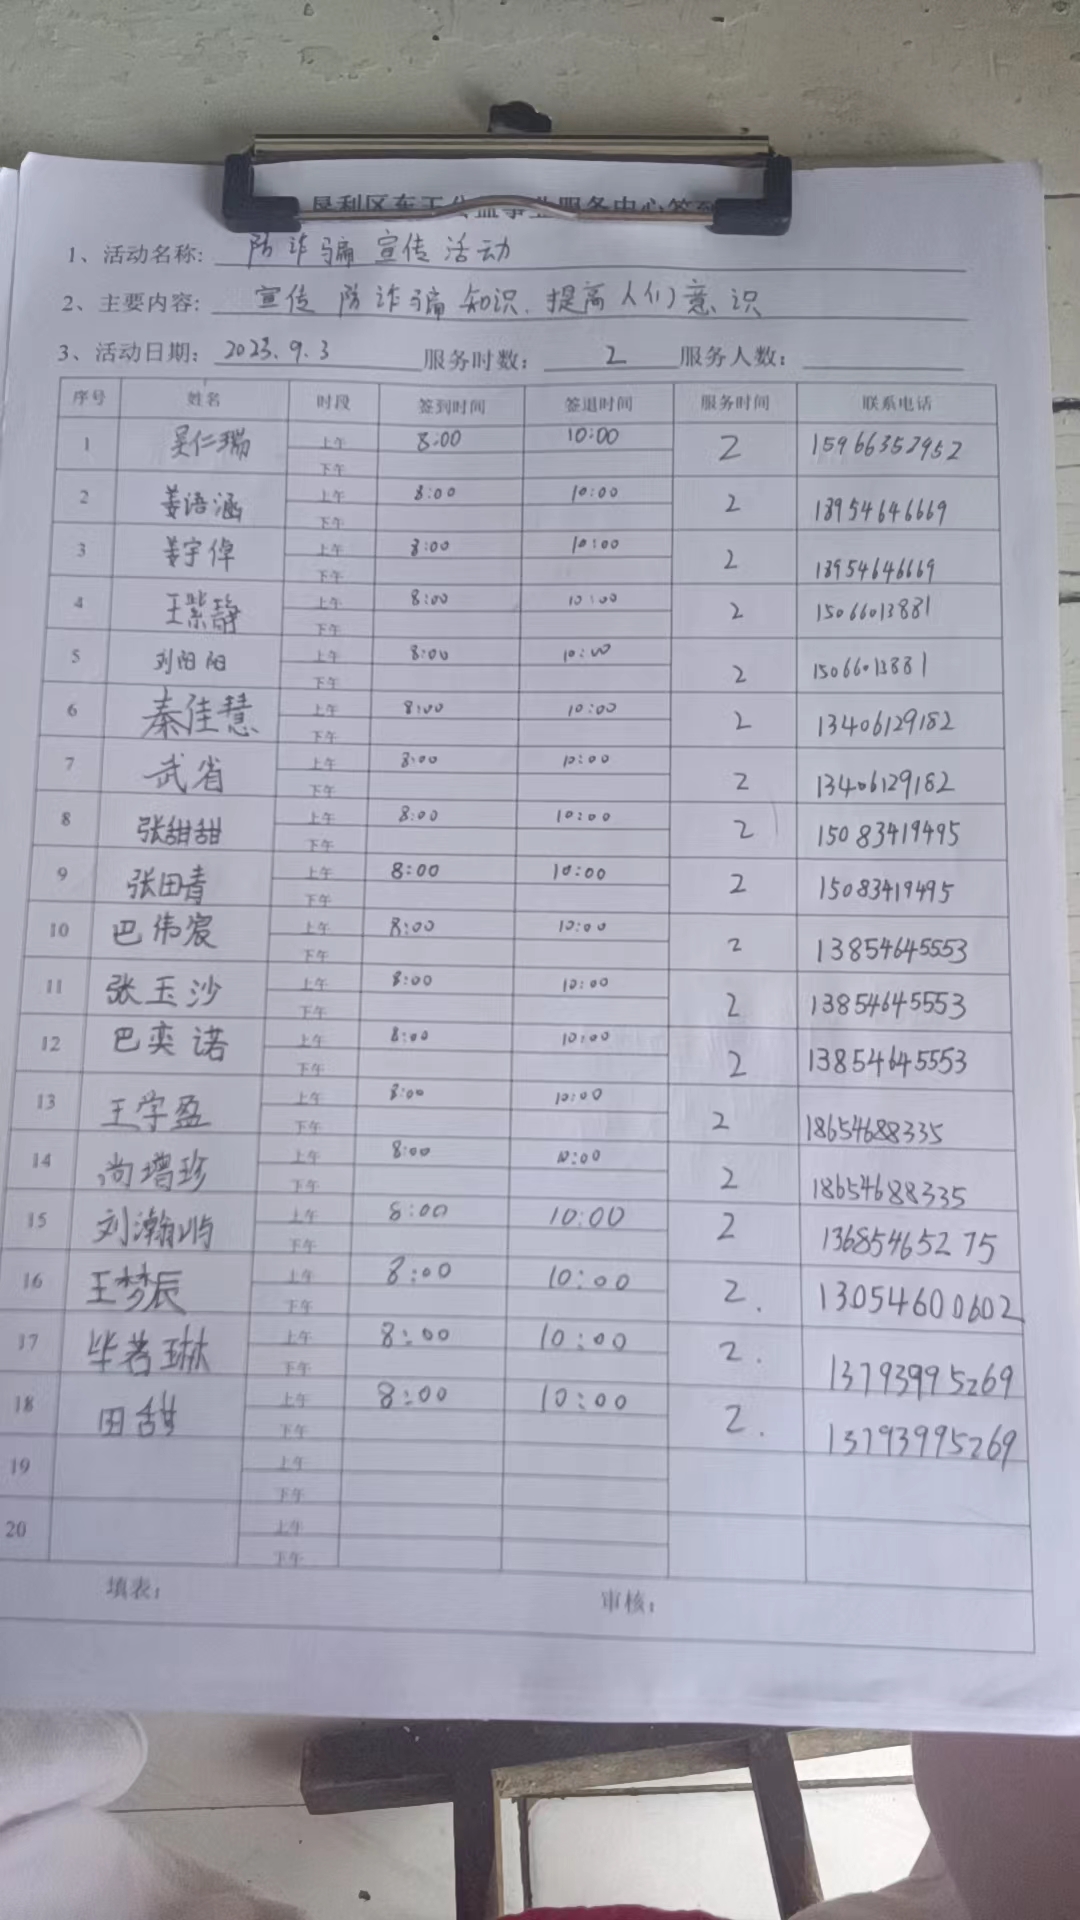 垦利区东王公益事业服务中心签到
1、活动名称: 防诈骗宣传活动
2、主要内容: 宣传防诈骗知识.提高人们意识
3、活动日期: 2023.9.3 服务时数: 2 服务人数:
序号 姓名 时段 签到时间 签退时间 服务时间 联系电话
1 吴仁瑞 上午 8:00 10:00 2 15966352952
下午
2 姜语涵 上午 8:00 10:00 2 18954646669
下午
3 姜宇倬 上午 8:00 10:00 2 18954646669
下午
4 王紫静 上午 8:00 10:00 2 15066013881
下午
5 刘阳阳 上午 8:00 10:00 2 15066013881
下午
6 秦佳慧 上午 8:00 10:00 2 13406129182
下午
7 武省 上午 8:00 10:00 2 13406129182
下午
8 张甜甜 上午 8:00 10:00 2 15083419495
下午
9 张田青 上午 8:00 10:00 2 15083419495
下午
10 巴伟宸 上午 8:00 10:00 2 13854645553
下午
11 张玉沙 上午 8:00 10:00 2 13854645553
下午
12 巴奕诺 上午 8:00 10:00 2 13854645553
下午
13 王学盈 上午 8:00 10:00 2 18654688335
下午
14 尚增珍 上午 8:00 10:00 2 18654688335
下午
15 刘瀚屿 上午 8:00 10:00 2 13685465275
下午
16 王梦辰 上午 8:00 10:00 2. 13054600602
下午
17 毕若琳 上午 8:00 10:00 2. 13793995269
下午
18 田甜 上午 8:00 10:00 2. 13793995269
下午
19 上午
下午
20 上午
下午
填表: 审核: